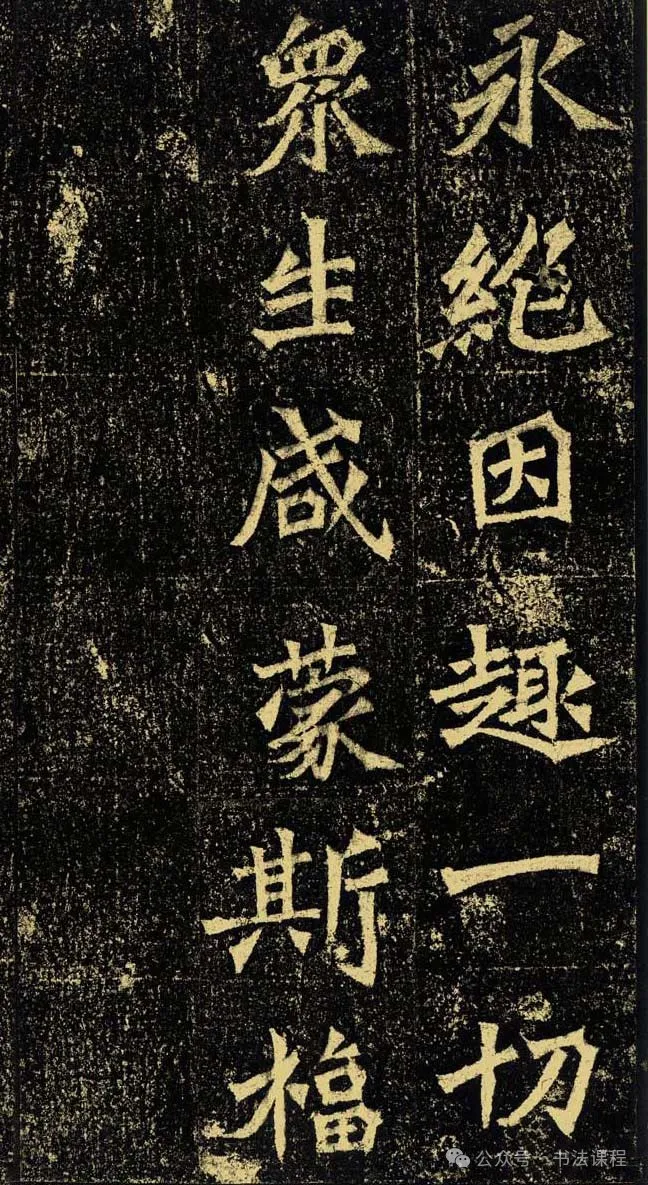 永絶因趣一切
眾生咸蒙斯福
公众号 · 书法课程